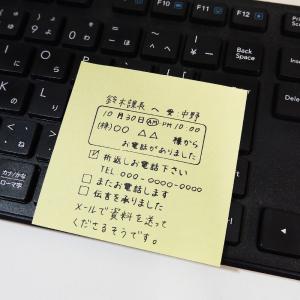 F10
F11
F12
Back Space
鈴木課長へ 受:中野
10月30日 AM PM 10:00
(株)○○ △△ 様から
お電話がありました
☑ 折返しお電話下さい
TEL 000-0000-0000
□ またお電話します
□ 伝言を承りました
メールで資料を送って
くださるそうです。
カタカナ/ひらがな
ローマ字
Back Space
Enter